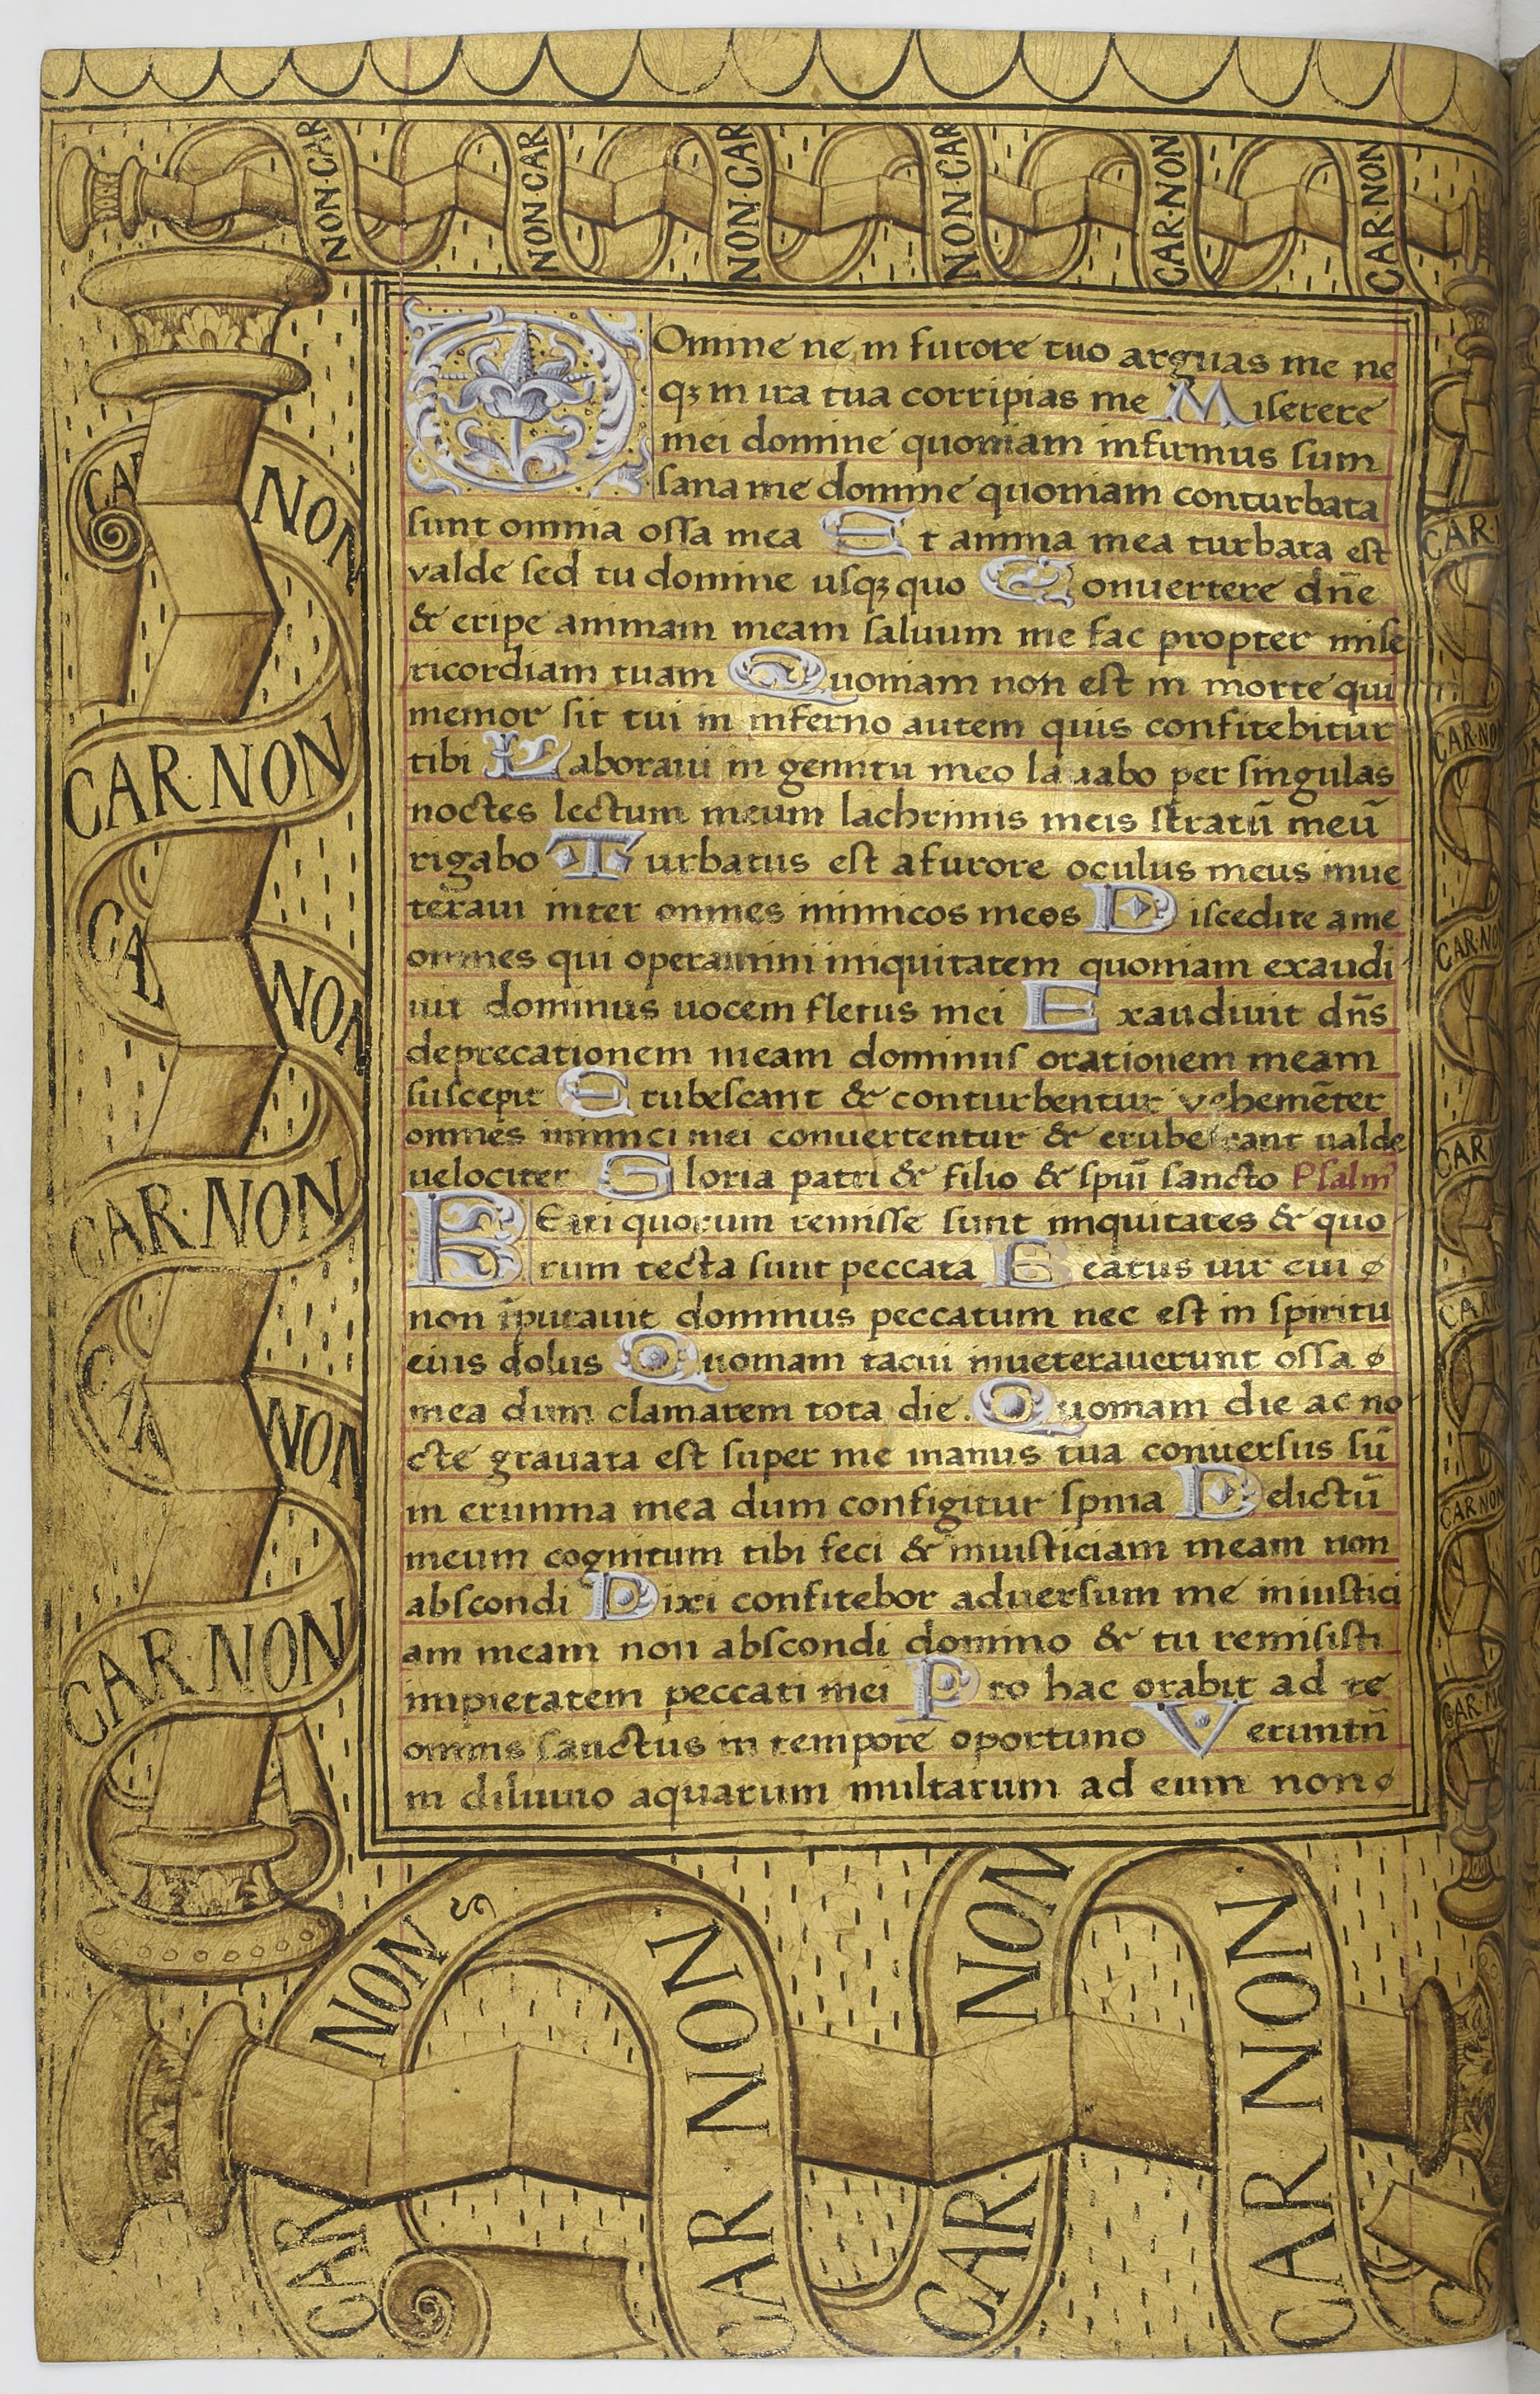 NON·CAR NON·CAR NON·CAR NON·CAR CAR·NON CAR·NON
Domine ne in furore tuo arguas me ne
qꝫ in ira tua corripias me Miserere
mei domine quoniam infirmus sum
sana me domine quoniam conturbata
sunt omnia ossa mea Et anima mea turbata est
valde sed tu domine usqꝫ quo Conuertere dn̄e
& eripe animam meam saluum me fac propter mise
ricordiam tuam Quoniam non est in morte qui
memor sit tui in inferno autem quis confitebitur
tibi Laboraui in gemitu meo lauabo per singulas
noctes lectum meum lachrimis meis stratū meū
rigabo Turbatus est a furore oculus meus inue
teraui inter omnes inimicos meos Discedite a me
omnes qui operamini iniquitatem quoniam exaudi
uit dominus uocem fletus mei Exaudiuit dn̄s
deprecationem meam dominus orationem meam
suscepit Erubescant & conturbentur vehemēter
omnes inimici mei conuertentur & erubescant ualde
uelociter Gloria patri & filio & spūi sancto Psalm
BEati quorum remisse sunt iniquitates & quo
rum tecta sunt peccata Beatus uir cui
non īputauit dominus peccatum nec est in spiritu
eius dolus Quoniam tacui inueterauerunt ossa
mea dum clamarem tota die. Quoniam die ac no
cte grauata est super me manus tua conuersus sū
in erumna mea dum configitur spina Delictū
meum cognitum tibi feci & iniusticiam meam non
abscondi Dixi confitebor aduersum me iniustici
am meam non abscondi domino & tu remisisti
impietatem peccati mei Pro hac orabit ad te
omnis sanctus in tempore oportuno Veruntn̄
in diluuio aquarum multarum ad eum non
CA NON
CAR·NON
CA NON
CAR·NON
CA NON
CAR·NON
CAR
CAR·NON
CAR·NON
CAR
CAR
CAR NON
CAR·N
CAR NON
CAR NON
CAR NON
CAR NON